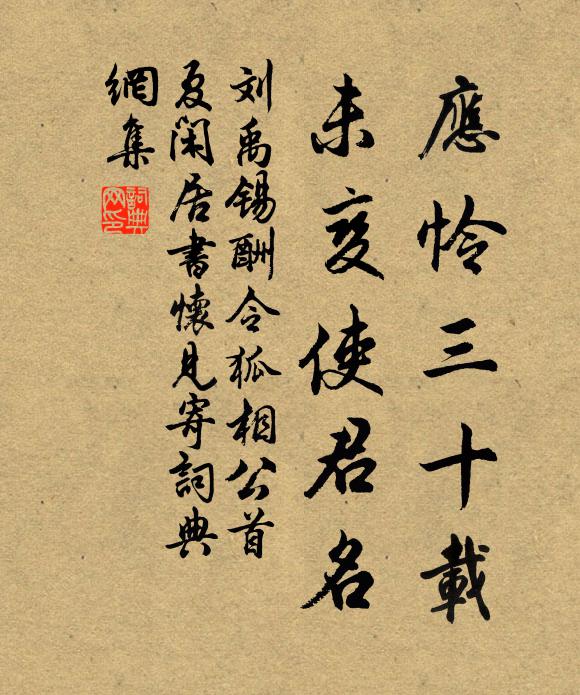 應怜三十載
未变使君名
刘禹锡酬令狐相公首
夏闲居書懷見寄詞典
網集
詞典
网印